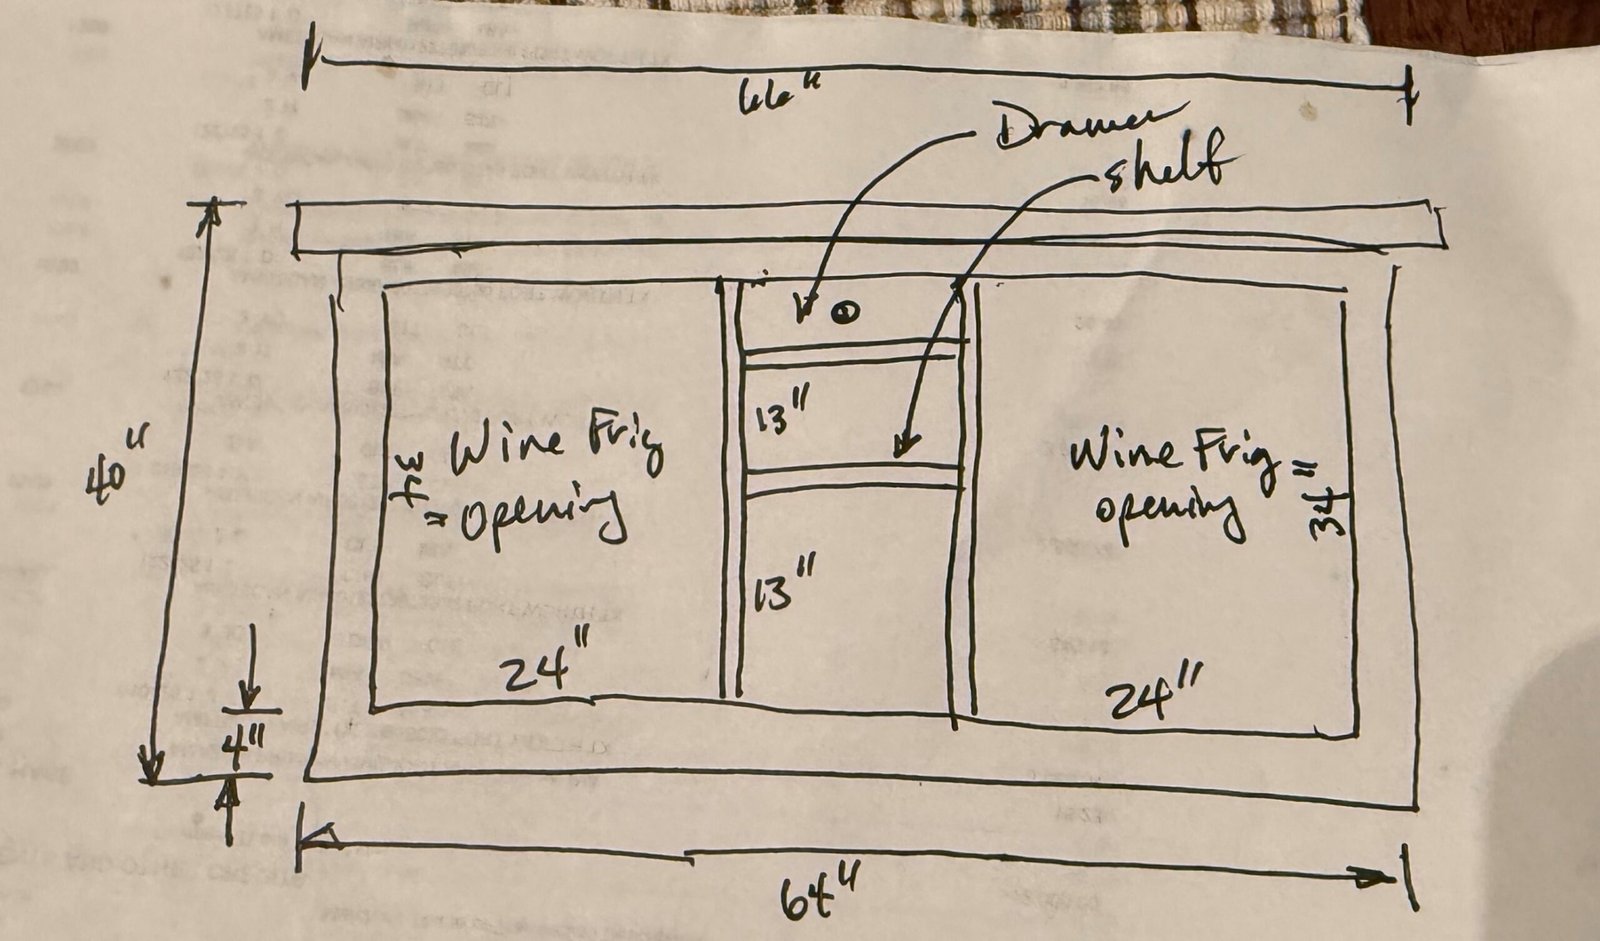 66"
Drawer
shelf
40"
34"
Wine Frig
opening
13"
13"
Wine Frig
opening
34"
24"
24"
4"
64"